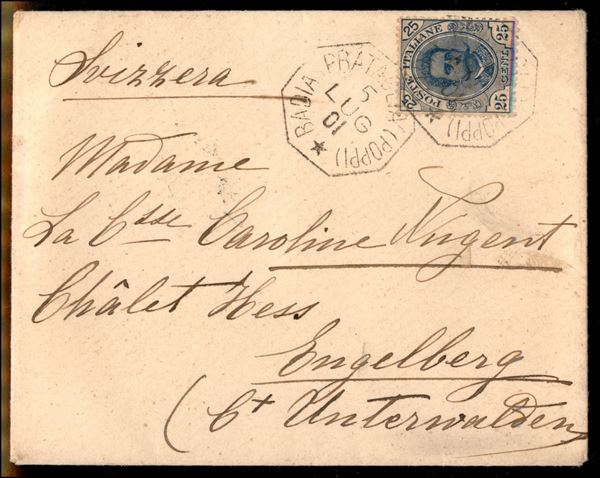 Svizzera
25 25
POSTE ITALIANE
CENT
25 25
BADIA PRATAGLIA (POPPI)
5
LUG
01
(POPPI)
Madame
La Csse Caroline Nugent
Châlet Hess
Engelberg
(Ct Unterwalden)